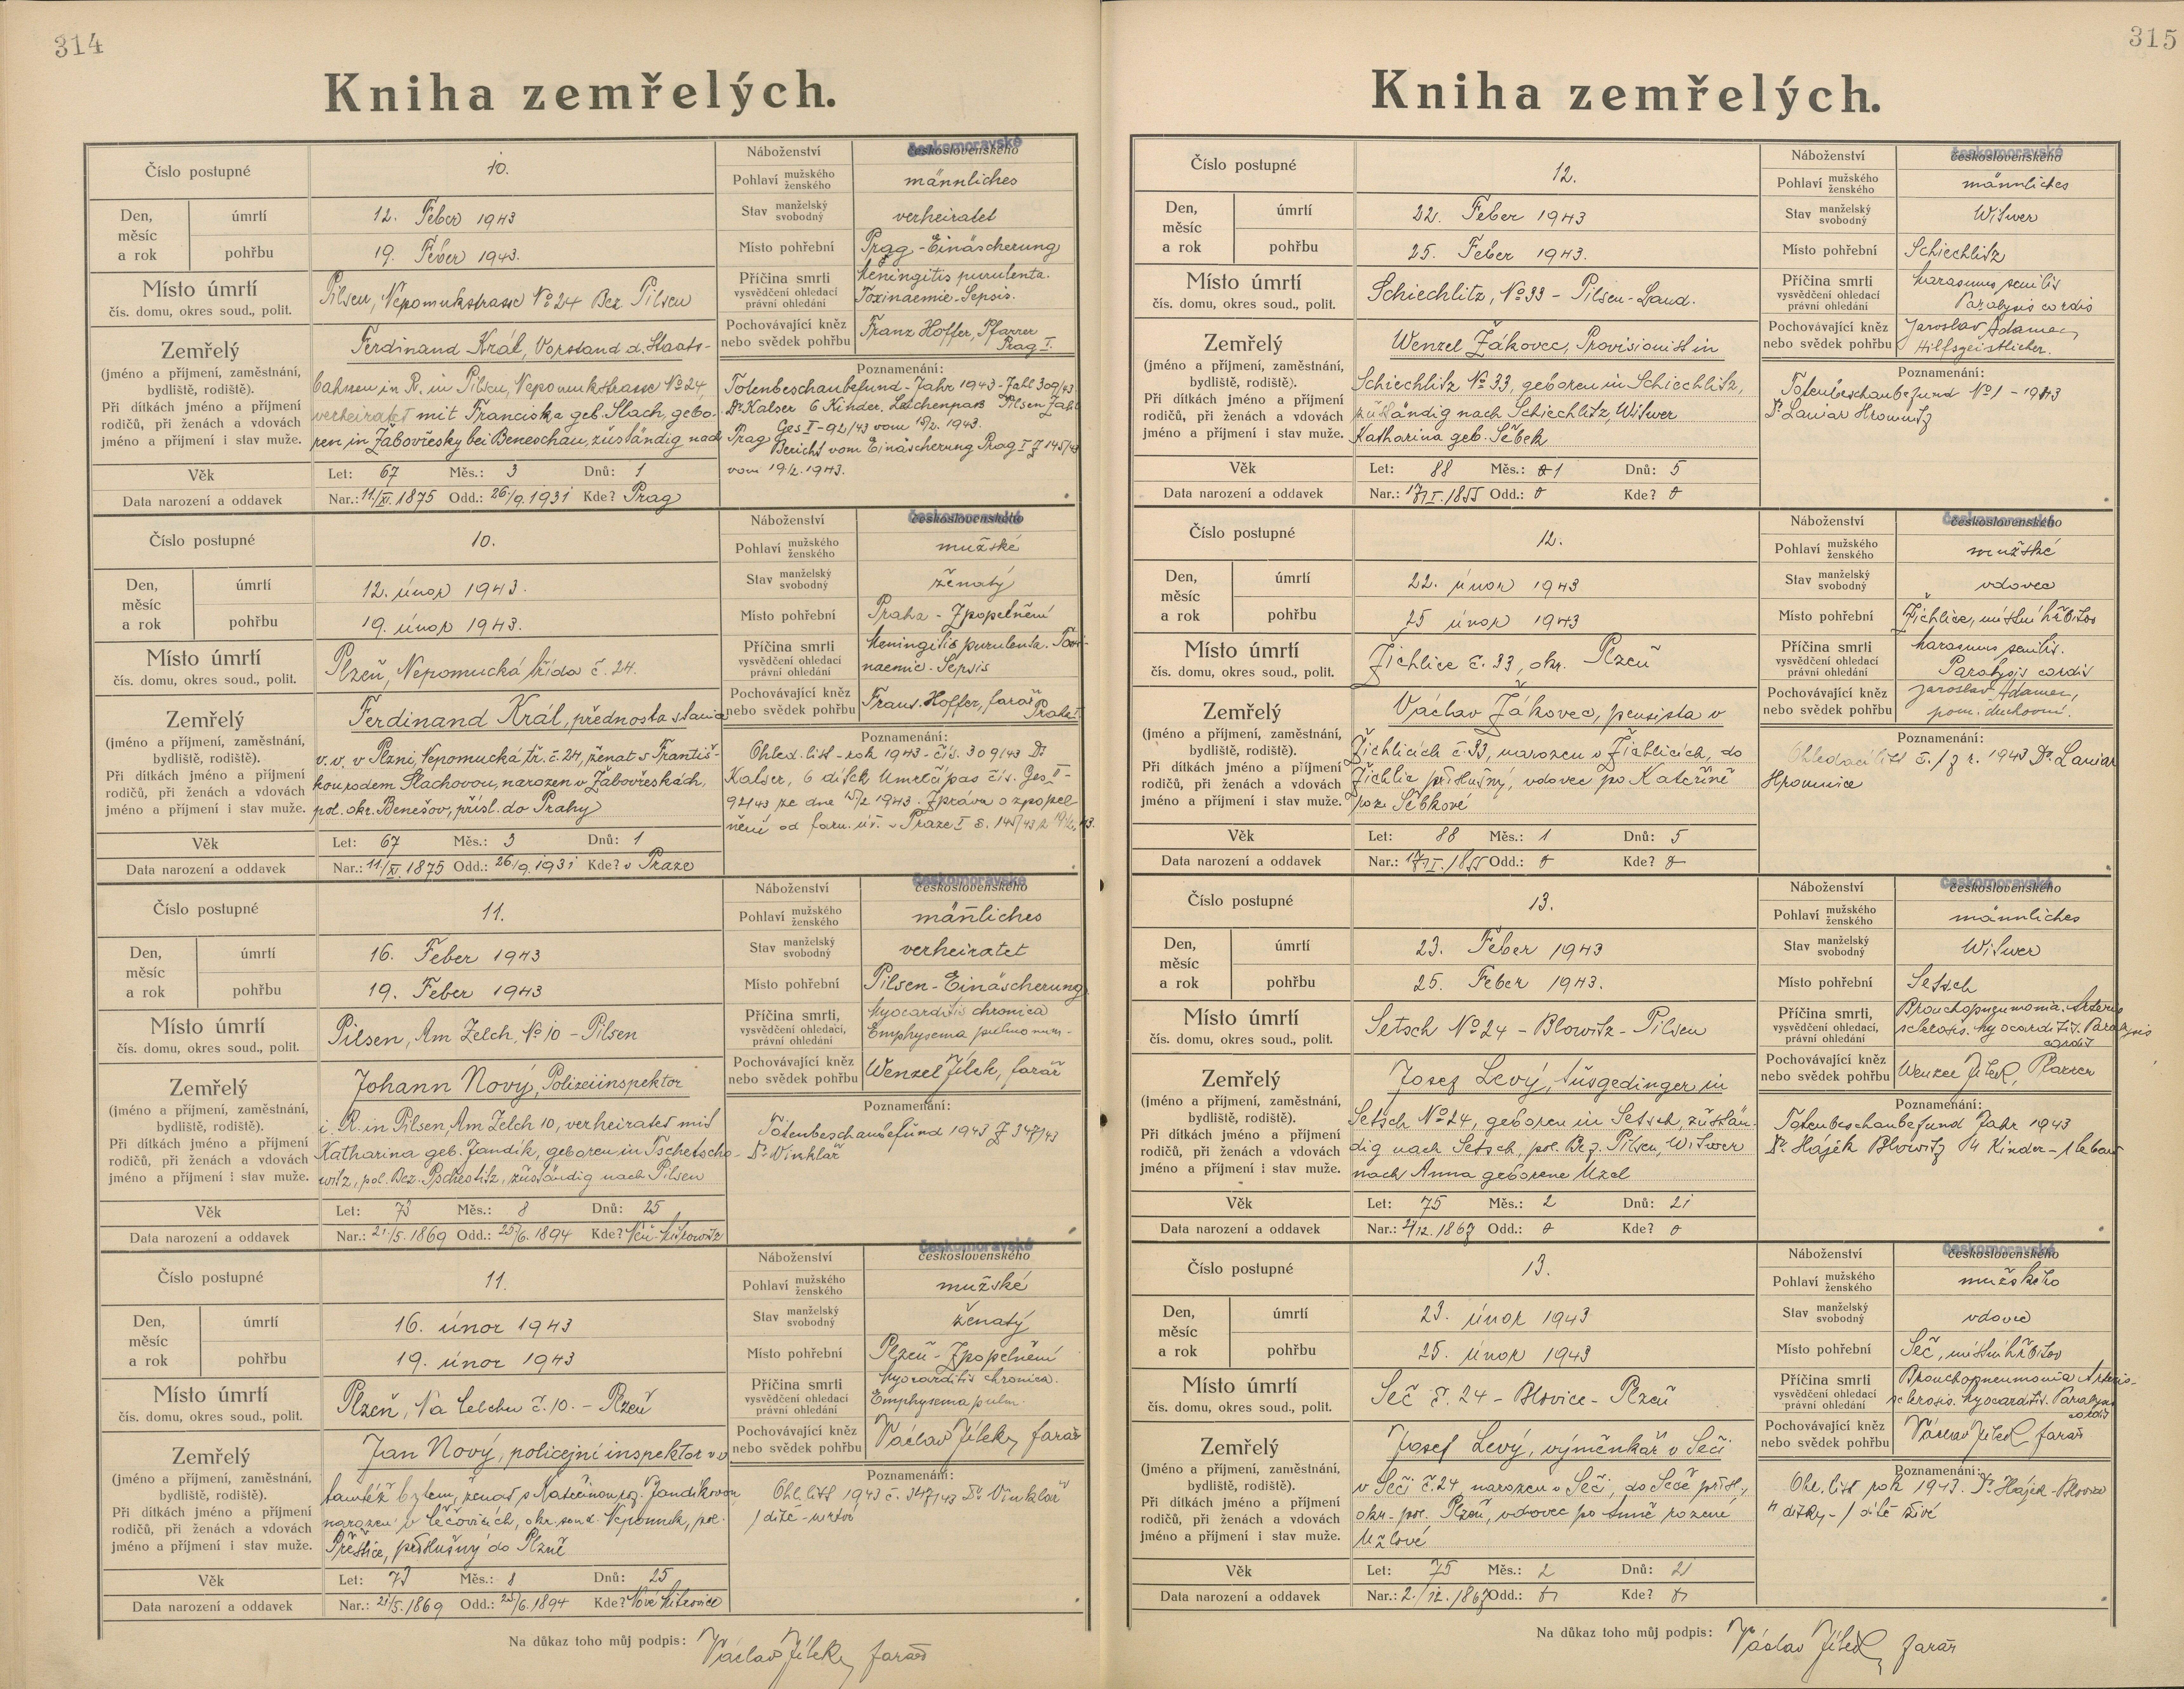 314
Kniha zemřelých.
Číslo postupné
10.
Den, měsíc a rok
úmrtí
12. Feber 1943
pohřbu
19. Feber 1943.
Místo úmrtí
čís. domu, okres soud., polit.
Pilsen, Nepomukstrasse No 24 Bez Pilsen
Zemřelý
(jméno a příjmení, zaměstnání,
bydliště, rodiště).
Při dítkách jméno a příjmení
rodičů, při ženách a vdovách
jméno a příjmení i stav muže.
Ferdinand Král, Vorstand d. Staats-
bahnen in R. in Pilsen, Nepomukstrasse No 24,
verheiratet mit Franciska geb. Slach, gebo-
ren in Žabovřesky bei Beneschau, zuständig nach Prag
Věk
Let: 67 Měs.: 3 Dnů: 1
Data narození a oddavek
Nar.: 11/XI. 1875 Odd.: 26/9. 1931 Kde? Prag
Náboženství
českomoravské
československého
Pohlaví mužského ženského
männliches
Stav manželský svobodný
verheiratet
Místo pohřební
Prag - Einäscherung
Příčina smrti
vysvědčení ohledací
právní ohledání
Meningitis purulenta.
Toxinaemie - Sepsis.
Pochovávající kněz
nebo svědek pohřbu
Franz Hoffer, Pfarrer
Prag I.
Poznamenání:
Totenbeschaubefund - Jahr 1943 - Zahl 309/43
Dr Kalser 6 Kinder, Leichenpass Pilsen Zahl
Ges I - 92/43 vom 15/2. 1943.
Bericht vom Einäscherung Prag I Z 145/43
vom 19/2. 1943.
Číslo postupné
10.
Den, měsíc a rok
úmrtí
12. únor 1943.
pohřbu
19. únor 1943.
Místo úmrtí
čís. domu, okres soud., polit.
Plzeň, Nepomucká třída č. 24.
Zemřelý
(jméno a příjmení, zaměstnání,
bydliště, rodiště).
Při dítkách jméno a příjmení
rodičů, při ženách a vdovách
jméno a příjmení i stav muže.
Ferdinand Král, přednosta stanice
v. v. v Plzni, Nepomucká tř. č. 24, ženat s Františ-
kou rodem Šlachovou, narozen v Žabovřeskách,
pol. okr. Benešov, přísl. do Prahy
Věk
Let: 67 Měs.: 3 Dnů: 1
Data narození a oddavek
Nar.: 11/XI. 1875 Odd.: 26/9. 1931 Kde? v Praze
Náboženství
českomoravské
československého
Pohlaví mužského ženského
mužské
Stav manželský svobodný
ženatý
Místo pohřební
Praha - Zpopelnění
Příčina smrti
vysvědčení ohledací
právní ohledání
Meningitis purulenta. Toxi-
naemie - Sepsis
Pochovávající kněz
nebo svědek pohřbu
Frant. Hoffer, farář
Praha I
Poznamenání:
Ohled. list - rok 1943 - čís. 309/43 Dr
Kalser, 6 dítek Umrlčí pas čís. Ges. I -
92/43 ze dne 15/2 1943. Zpráva o zpopel-
nění od farn. úř. v Praze I č. 145/43 z 19/2. 43.
Číslo postupné
11.
Den, měsíc a rok
úmrtí
16. Feber 1943
pohřbu
19. Feber 1943
Místo úmrtí
čís. domu, okres soud., polit.
Pilsen, Am Zelch, No 10 - Pilsen
Zemřelý
(jméno a příjmení, zaměstnání,
bydliště, rodiště).
Při dítkách jméno a příjmení
rodičů, při ženách a vdovách
jméno a příjmení i stav muže.
Johann Nový, Polizeiinspektor
i. R. in Pilsen, Am Zelch 10, verheiratet mit
Katharina geb. Jandik, geboren in Tschetscho-
witz, pol. Bez. Pschestitz, zuständig nach Pilsen
Věk
Let: 73 Měs.: 8 Dnů: 25
Data narození a oddavek
Nar.: 21/5. 1869 Odd.: 25/6. 1894 Kde? Neu-Mitrowitz
Náboženství
českomoravské
československého
Pohlaví mužského ženského
männliches
Stav manželský svobodný
verheiratet
Místo pohřební
Pilsen - Einäscherung
Příčina smrti,
vysvědčení ohledací,
právní ohledání
Myocarditis chronica
Emphysema pulmonum -
Pochovávající kněz
nebo svědek pohřbu
Wenzel Jílek, farář
Poznamenání:
Totenbeschaubefund 1943 Z 347/43
Dr Vinklář
Číslo postupné
11.
Den, měsíc a rok
úmrtí
16. únor 1943
pohřbu
19. únor 1943
Místo úmrtí
čís. domu, okres soud., polit.
Plzeň, Na Celchu č. 10. - Plzeň
Zemřelý
(jméno a příjmení, zaměstnání,
bydliště, rodiště).
Při dítkách jméno a příjmení
rodičů, při ženách a vdovách
jméno a příjmení i stav muže.
Jan Nový, policejní inspektor v v
tamtéž bytem, ženat s Kateřinou roz. Jandikovou
narozen v Čečovicích, okr. soud. Nepomuk, pol.
Přeštice, příslušný do Plzně
Věk
Let: 73 Měs.: 8 Dnů: 25
Data narození a oddavek
Nar.: 21/5. 1869 Odd.: 25/6. 1894 Kde? Nové Mitrovice
Náboženství
českomoravské
československého
Pohlaví mužského ženského
mužské
Stav manželský svobodný
ženatý
Místo pohřební
Plzeň - Zpopelnění
Příčina smrti
vysvědčení ohledací
právní ohledání
Myocarditis chronica.
Emphysema pulm.
Pochovávající kněz
nebo svědek pohřbu
Václav Jílek, farář
Poznamenání:
Ohl. list 1943 č. 347/43 Dr Vinklář
1 dítě - mrtvé
Na důkaz toho můj podpis: Václav Jílek, farář
315
Kniha zemřelých.
Číslo postupné
12.
Den, měsíc a rok
úmrtí
22. Feber 1943
pohřbu
25. Feber 1943.
Místo úmrtí
čís. domu, okres soud., polit.
Schiechlitz, No 33 - Pilsen - Land.
Zemřelý
(jméno a příjmení, zaměstnání,
bydliště, rodiště).
Při dítkách jméno a příjmení
rodičů, při ženách a vdovách
jméno a příjmení i stav muže.
Wenzel Žákovec, Provisionist in
Schiechlitz No 33, geboren in Schiechlitz,
zuständig nach Schiechlitz, Witwer
Katharina geb. Sěbek
Věk
Let: 88 Měs.: 1 Dnů: 5
Data narození a oddavek
Nar.: 17/I. 1855 Odd.: 0 Kde? 0
Náboženství
českomoravské
československého
Pohlaví mužského ženského
männliches
Stav manželský svobodný
Witwer
Místo pohřební
Schiechlitz
Příčina smrti
vysvědčení ohledací
právní ohledání
Marasmus senilis
Paralysis cordis
Pochovávající kněz
nebo svědek pohřbu
Jaroslav Adamec,
Hilfsgeistlicher.
Poznamenání:
Totenbeschaubefund No 1 - 1943
Dr Laniar Hromnitz
Číslo postupné
12.
Den, měsíc a rok
úmrtí
22. únor 1943
pohřbu
25 únor 1943
Místo úmrtí
čís. domu, okres soud., polit.
Žichlice č. 33, okr. Plzeň
Zemřelý
(jméno a příjmení, zaměstnání,
bydliště, rodiště).
Při dítkách jméno a příjmení
rodičů, při ženách a vdovách
jméno a příjmení i stav muže.
Václav Žákovec, pensista v
Žichlicích č. 33, narozen v Žichlicích, do
Žichlic příslušný, vdovec po Kateřině
roz. Sěbkové
Věk
Let: 88 Měs.: 1 Dnů: 5
Data narození a oddavek
Nar.: 17/I. 1855 Odd.: 0 Kde? 0
Náboženství
českomoravské
československého
Pohlaví mužského ženského
mužské
Stav manželský svobodný
vdovec
Místo pohřební
Žichlice, místní hřbitov
Příčina smrti
vysvědčení ohledací
právní ohledání
Marasmus senilis.
Paralysis cordis
Pochovávající kněz
nebo svědek pohřbu
Jaroslav Adamec,
pom. duchovní.
Poznamenání:
Ohledací list č. 1 z r. 1943 Dr. Laniar
Hromnice
Číslo postupné
13.
Den, měsíc a rok
úmrtí
23. Feber 1943
pohřbu
25. Feber 1943.
Místo úmrtí
čís. domu, okres soud., polit.
Setsch No 24 - Blowitz - Pilsen
Zemřelý
(jméno a příjmení, zaměstnání,
bydliště, rodiště).
Při dítkách jméno a příjmení
rodičů, při ženách a vdovách
jméno a příjmení i stav muže.
Josef Levý, Ausgedinger in
Setsch No 24, geboren in Setsch, zustän-
dig nach Setsch, pol. Bez. Pilsen, Witwer
nach Anna geborene Uzel
Věk
Let: 75 Měs.: 2 Dnů: 21
Data narození a oddavek
Nar.: 2/12. 1867 Odd.: 0 Kde? 0
Náboženství
českomoravské
československého
Pohlaví mužského ženského
männliches
Stav manželský svobodný
Witwer
Místo pohřební
Setsch
Příčina smrti,
vysvědčení ohledací,
právní ohledání
Bronchopneumonia. Arterio
sclerosis. Myocarditis. Paralysis
cordis
Pochovávající kněz
nebo svědek pohřbu
Wenzel Jílek, Pfarrer
Poznamenání:
Totenbeschaubefund Jahr 1943
Dr Hájek Blowitz 4 Kinder - 1 lebend
Číslo postupné
13.
Den, měsíc a rok
úmrtí
23. únor 1943
pohřbu
25. únor 1943
Místo úmrtí
čís. domu, okres soud., polit.
Seč č. 24 - Blovice - Plzeň
Zemřelý
(jméno a příjmení, zaměstnání,
bydliště, rodiště).
Při dítkách jméno a příjmení
rodičů, při ženách a vdovách
jméno a příjmení i stav muže.
Josef Levý, výměnkář v Seči
v Seči č. 24 narozen v Seči, do Seče přísl.,
okr. pol. Plzeň, vdovec po Anně rozené
Uzlové
Věk
Let: 75 Měs.: 2 Dnů: 21
Data narození a oddavek
Nar.: 2./12. 1867 Odd.: 0 Kde? 0
Náboženství
českomoravské
československého
Pohlaví mužského ženského
mužského
Stav manželský svobodný
vdovec
Místo pohřební
Seč, místní hřbitov
Příčina smrti
vysvědčení ohledací
právní ohledání
Bronchopneumonia Arterio-
sclerosis. Myocarditis. Paralysis
cordis
Pochovávající kněz
nebo svědek pohřbu
Václav Jílek farář
Poznamenání:
Ohl. list rok 1943. Dr. Hájek - Blovice
4 dítky - 1 dítě živé
Na důkaz toho můj podpis: Václav Jílek, farář